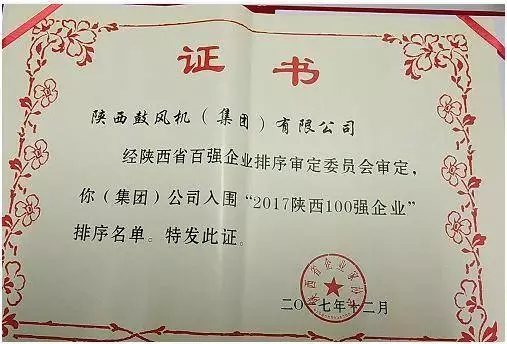 证书
陕西鼓风机（集团）有限公司
经陕西省百强企业排序审定委员会审定，
你（集团）公司入围“2017陕西100强企业”
排序名单。特发此证。
陕西省企业家协会
二〇一七年十二月